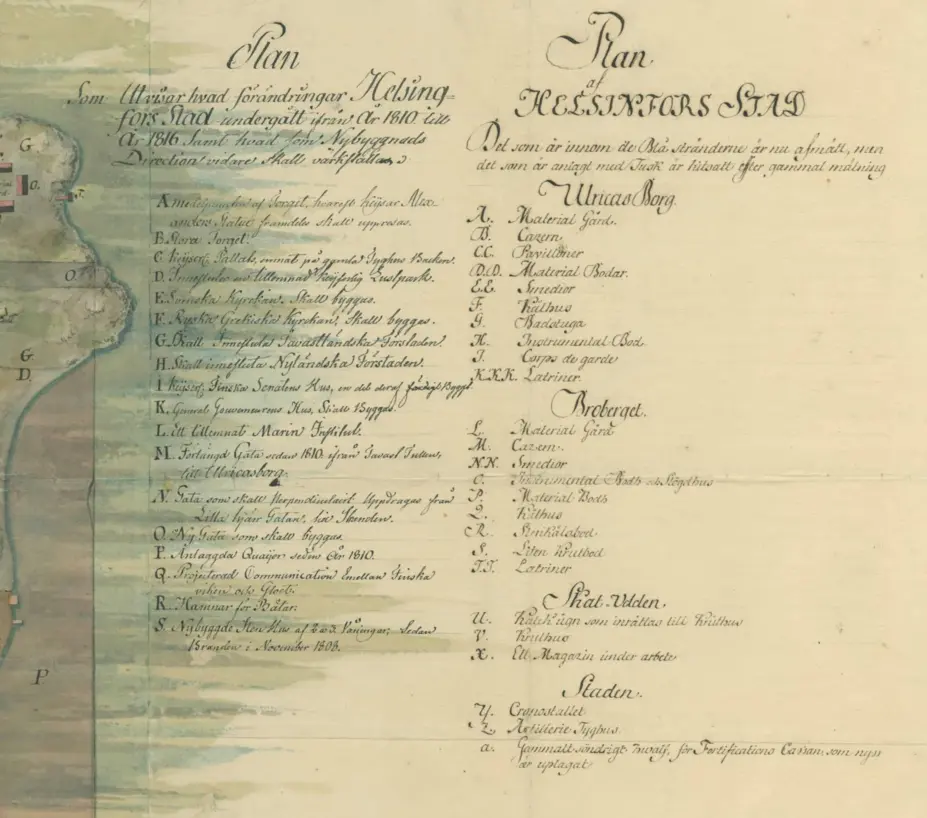 Plan
Som Utvisar hvad förändringar Helsing=
fors Stad undergått ifrån År 1810. till
År 1816 samt hvad som Nybyggnads
Direction vidare skall värkställa,
A. af Torget, hvarest Keysar Alex-
anders Statue framdeles skall uppresas.
B. Stora Torget.
C. Keyserl. Pallats, ämnat på gamla Tyghus Backen.
D. Inneslutes en tillemnad Keyserlig Lustpark.
E. Svenska Kyrckan, Skall byggas.
F. Ryska Grekiska Kyrckan, Skall bygges.
G. Skall Innesluta Tavastländska Förstaden.
H. Skall innesluta Nyländska Förstaden.
I. Keyserl. Finska Senatens Hus, en del deraf färdigt Bygt.
K. General Gouveneurens Hus, Skall Bygges.
L. Ett tillemnat Marin Institut.
M. Förlängd Gata sedan 1810. ifrån Tavast Tullen,
till Ulricasborg.
N. Gata som skall Perpendiculairt Uppdragas från
Lilla Gatan, till Stranden.
O. Ny Gata som skall byggas.
P. Anlaggda Quaijer sedan År 1810.
Q. Projecterad Communication Emellan Finska
viken och Gloet.
R. Hamnar för Båtar.
S. Nybyggde Sten Hus af 2 a 3. Våningar, Sedan
Branden i November 1808.
Plan
af
HELSINFORS STAD
Det som är innom de Blå stränderne är nu afmätt, men
det som är anlagt med Tusk är tilsatt efter gammal mätning
Ulricas Borg.
A. Material Gård.
B. Cazern.
C.C. Pavillioner
D.D. Material Bodar.
E.E. Smedior
F. Kålhus
G. Badstuga
H. Instrumental Bod.
I. Corps de garde
K.K.K. Latriner.
Broberget.
L. Material Gård
M. Cazern.
N.N. Smedior
O. Instrumental Bod och Slögdhus
P. Material Bod
Q. Kålhus
R. Stenkålsbod
S. Liten Krutbod
T.T. Latriner
Skat Udden.
U. Kalck ugn som inrättas till Kruthus
V. Kruthus
X. Ett Magazin under arbete
Staden.
Y. Cronostallet
Z. Artillerie Tyghus.
a. Gammalt söndrigt hvalf, för Fortifications Cassan, som nyss
är uplagat.
G
O.
O.
G.
D.
P